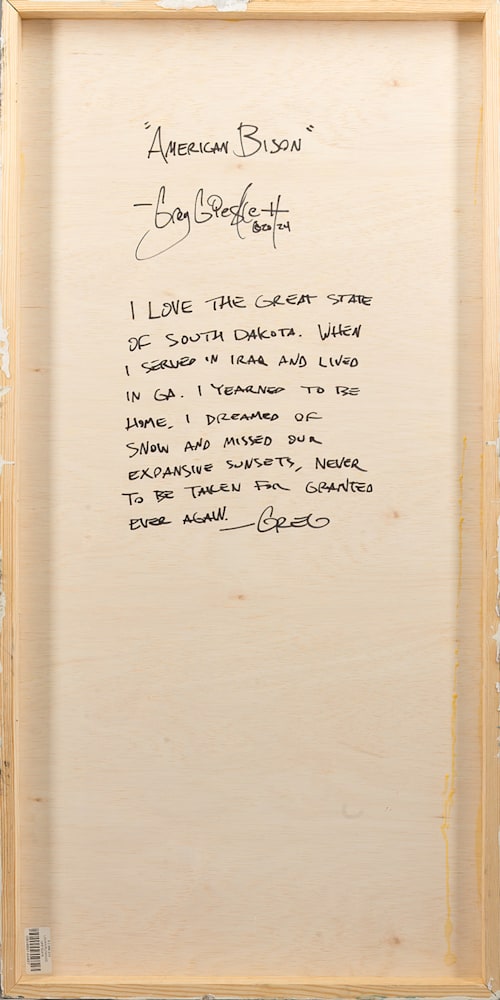 "AMERICAN BISON"
- Greg
I LOVE THE GREAT STATE
OF SOUTH DAKOTA. WHEN
I SERVED IN IRAQ AND LIVED
IN GA. I YEARNED TO BE
HOME, I DREAMED OF
SNOW AND MISSED OUR
EXPANSIVE SUNSETS, NEVER
TO BE TAKEN FOR GRANTED
EVER AGAIN. — GREG